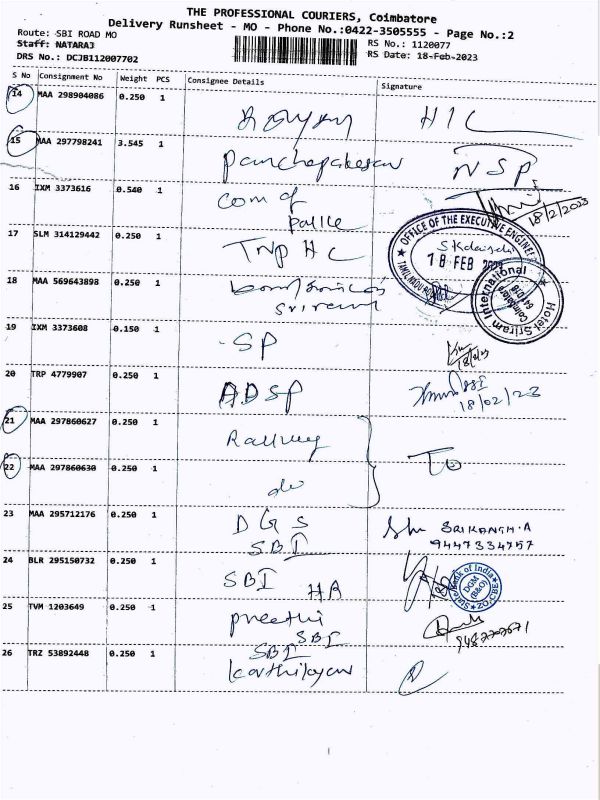 THE PROFESSIONAL COURIERS, Coimbatore
Delivery Runsheet - MO - Phone No.:0422-3505555 - Page No.:2
Route: SBI ROAD MO
RS No.: 1120077
Staff: NATARAJ
RS Date: 18-Feb-2023
DRS No.: DCJB112007702
S No Consignment No Weight PCS Consignee Details Signature
14 MAA 298904086 0.250 1 HIC
15 MAA 297798241 3.545 1 Panchapakesan NSP
16 IXM 3373616 0.540 1 Com of Police 18/2/2023
17 SLM 314129442 0.250 1 TNP HC
OFFICE OF THE EXECUTIVE ENGINEER
TAMIL NADU
18 FEB
18 MAA 569643898 0.250 1 Sriram
Hotel Sriram International
Coimbatore
641 018
19 IXM 3373608 0.150 1 SP 18/2/23
20 TRP 4779907 0.250 1 ADSP 18/02/23
21 MAA 297860627 0.250 1 Railway
22 MAA 297860630 0.250 1 do
23 MAA 295712176 0.250 1 DGS SBI SRIKANTH.A
9447334757
24 BLR 295150732 0.250 1 SBI HR
State Bank of India
DGM
(B&O)
ZO, CBE
25 TVM 1203649 0.250 1 Preethi SBI
26 TRZ 53892448 0.250 1 SBI Karthikeyan